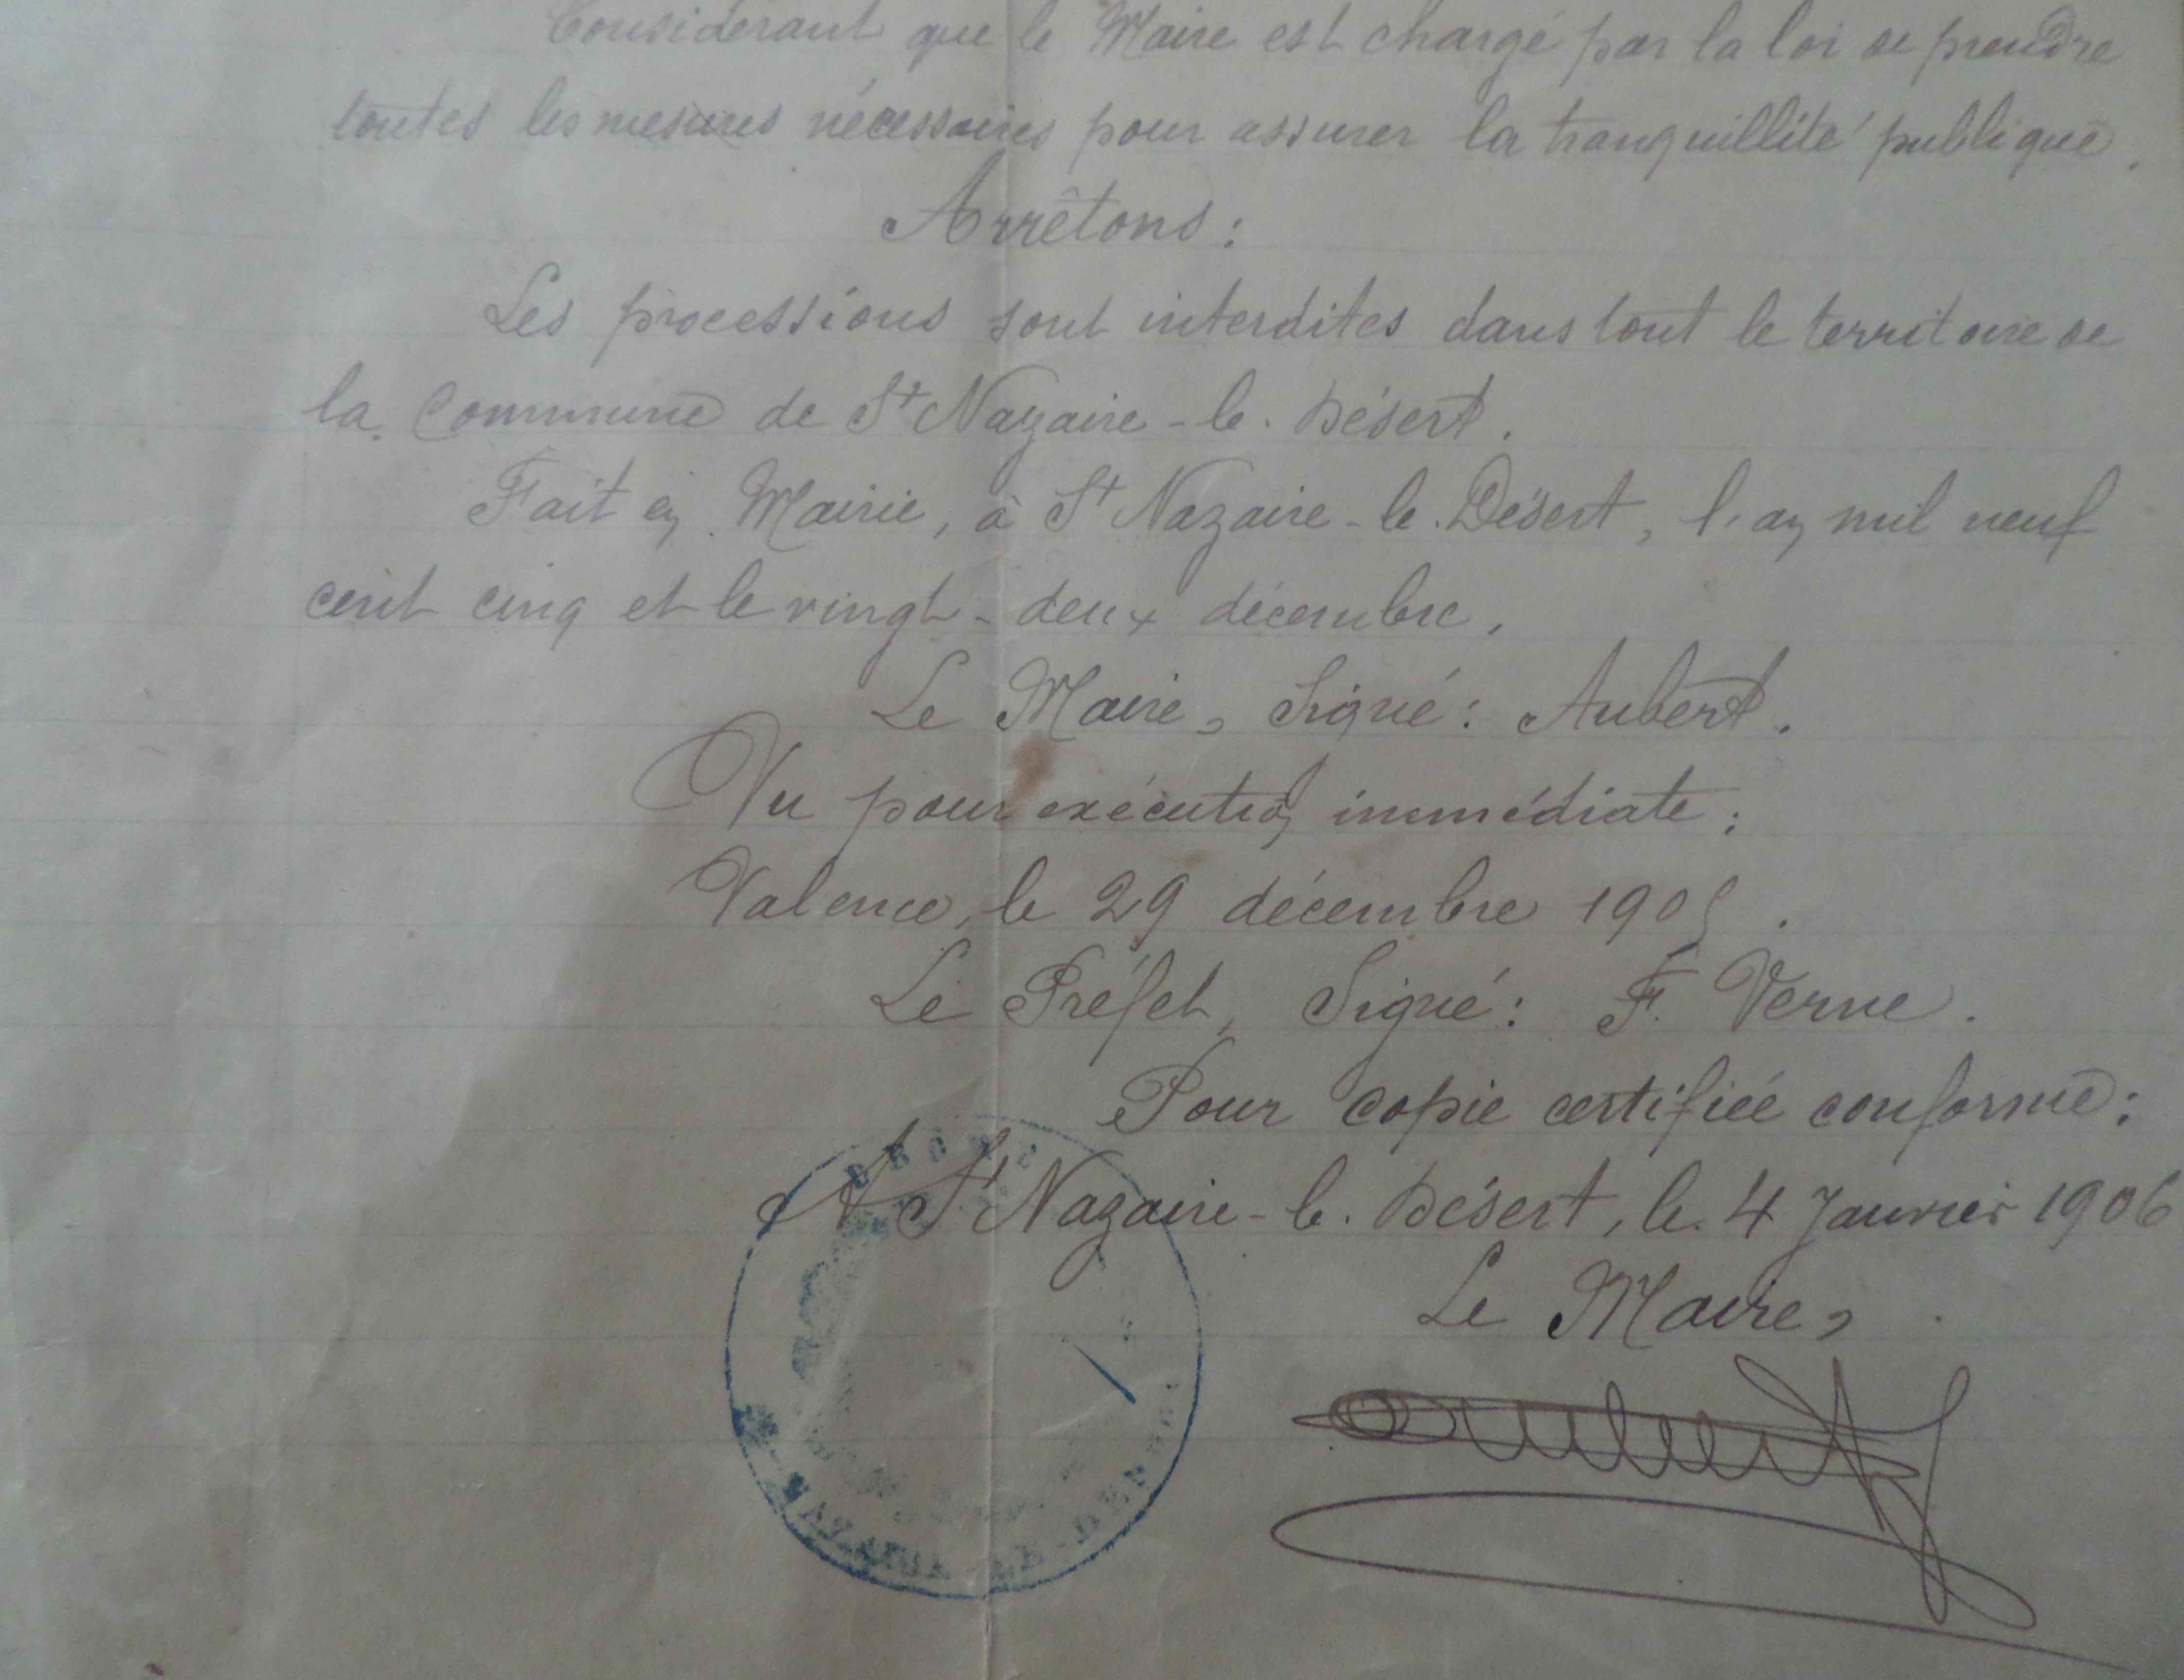 Considerant que le Maire est chargé par la loi de prendre
toutes les mesures nécessaires pour assurer la tranquillité publique.
Arrêtons:
Les processions sont interdites dans tout le territoire de
la Commune de St Nazaire-le-Désert.
Fait en Mairie, à St Nazaire-le-Désert, l'an mil neuf
cent cinq et le vingt-deux décembre.
Le Maire, Signé: Aubert.
Vu pour exécution immédiate:
Valence, le 29 décembre 1905.
Le Préfet, Signé: F. Verne.
Pour copie certifiée conforme:
A St Nazaire-le-Désert, le 4 Janvier 1906
Le Maire,
Aubert